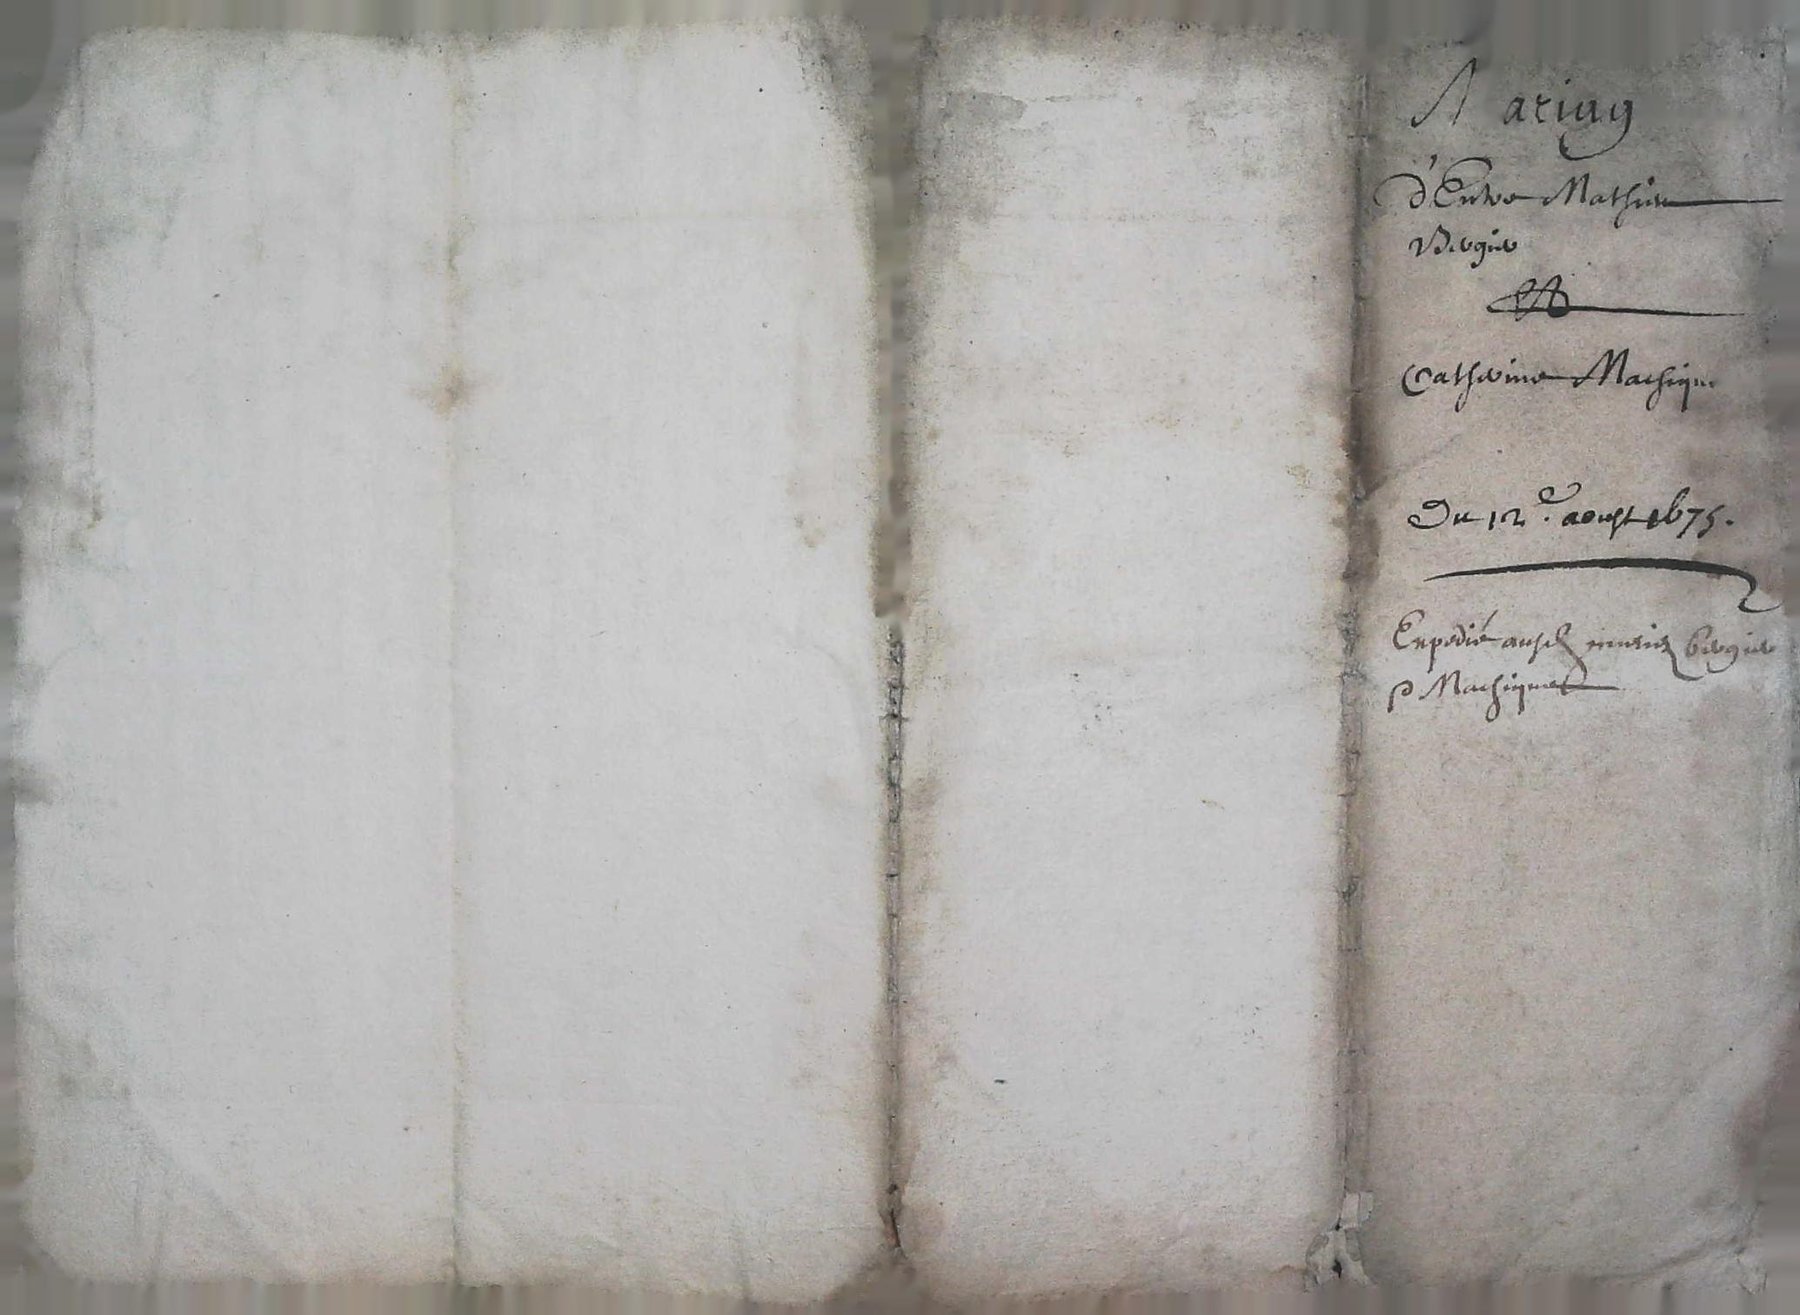 Mariag
d'Entre Mathieu
Bergier
&
Catherine Machiqu
Du 12e. aoust 1675.
Expedié ausd mariez bergier
Machique